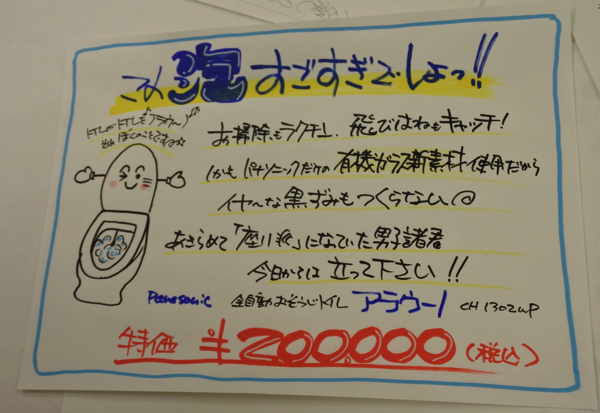 この泡すごすぎでしょっ!!
お掃除もラクチン、飛びはねもキャッチ!
しかもパナソニックだけの有機ガラス新素材使用だから
イヤ〜な黒ずみもつくらない
あきらめて「座り派」になっていた男子諸君
今日からは立って下さい!!
Panasonic 全自動おそうじトイレ アラウーノ CH1302WP
特価 ¥200,000(税込)